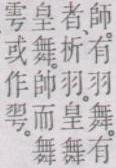 師。有羽舞。有
者、析羽。皇舞
皇舞。帥而舞
雩或作𦏻。